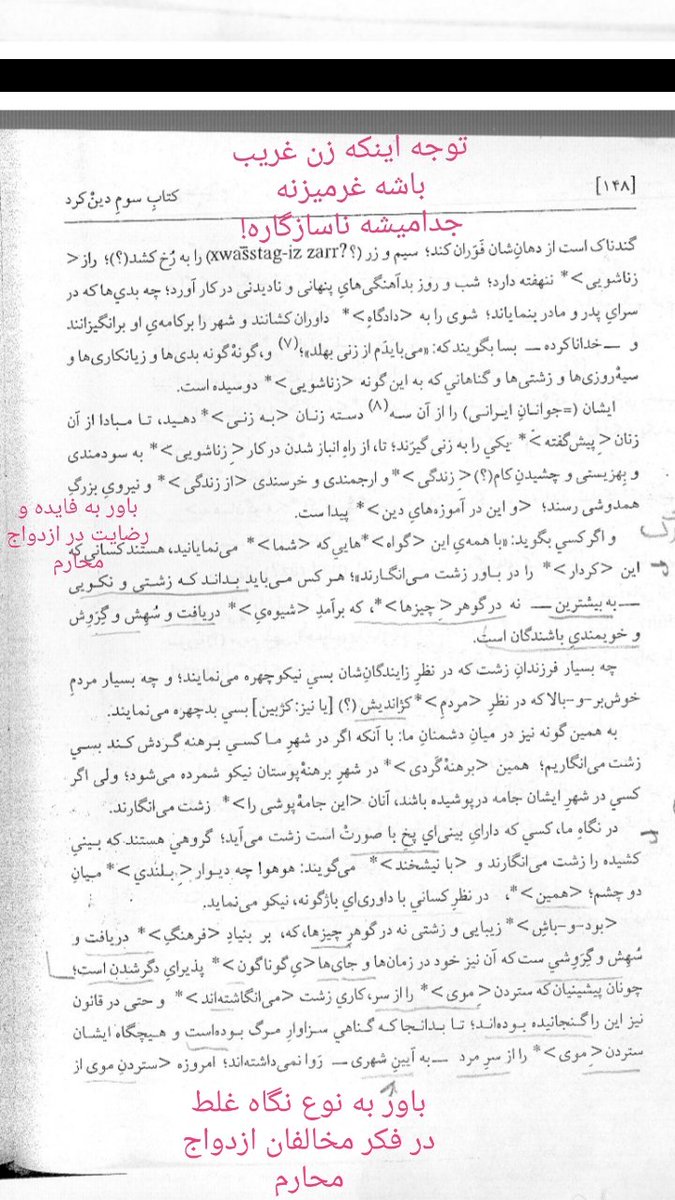 توجه اینکه زن غریب
باشه غرمیزنه
جدامیشه ناسازگاره!
[۱۴۸]
کتابِ سومِ دینْ‌کرد
گندناک است از دهانِ‌شان فَوَران کند؛ سیم و زر (؟ xwāsstag-iz zarr?) را به رُخ کشد(؟)؛ راز <
زناشویی>* ننهفته دارد؛ شب و روز بدآهنگی‌هایِ پنهانی و نادیدنی در کار آورد؛ چه بدی‌ها که در
سرای پدر و مادر بنمایاند؛ شوی را به <دادگاهِ>* داوران کشانند و شهر را برکامه‌یِ او برانگیزانند
و ــ خداناکرده ــ بسا بگویند که: «می‌بایدَم از زنی بهلد»؛(۷) و، گونهْ گونه بدی‌ها و زیانکاری‌ها و
سیهْ‌روزی‌ها و زشتی‌ها و گناهاني که به این گونه <زناشویی>* دوسیده است.
ایشان (=جوانانِ ایرانی) را از آن سه(۸) دسته زنان <به زنی>* دهید، تا مبادا از آن
زنانِ <پیش‌گفته>* یکي را به زنی گیرَند؛ تا، از راهِ انباز شدن در کار <ِ زناشویی>* به سودمندی
و بِهزیستی و چشیدنِ کام(؟) <ِ زندگی>* و ارجمندی و خرسندی <از زندگی>* و نیرویِ بزرگِ
همدوشی رسند؛ <و این در آموزه‌هایِ دین>* پیدا ست.
باور به فایده و
رضایت در ازدواج
محارم
و اگر کسي بگوید: «با همه‌ي این <گواه>*هایي که <شما>* می‌نمایانید، هستند کساني که
این <کردار>* را در باور زشت می‌انگارند»؛ هر کس می‌باید بداند که زشتی و نکویی
ــ به بیشترین ــ نه در گوهر <ِ چیزها>*، که برآمدِ <شیوه‌ي>* دریافت و سُهِش و گِرَوِش
و خویمندیِ باشندگان است.
چه بسیار فرزندانِ زشت که در نظرِ زایندگانِ‌شان بسي نیکوچهره می‌نمایند؛ و چه بسیار مردمِ
خوش‌بر-و-بالا که در نظرِ <مردمِ>* کژاندیش (؟) [یا نیز: کژبین] بسي بدچهره می‌نمایند.
به همین گونه نیز در میانِ دشمنانِ ما: با آنکه اگر در شهرِ ما کسي برهنه گردش کند بسي
زشت می‌انگاریم؛ همین <برهنهْ‌گردی>* در شهرِ برهنهْ‌پوستان نیکو شمرده می‌شود؛ ولی اگر
کسي در شهرِ ایشان جامه درپوشیده باشد، آنان <این جامهْ‌پوشی را>* زشت می‌انگارند.
در نگاهِ ما، کسي که دارایِ بینی‌اي پخِ با صورتْ است زشت می‌آید؛ گروهي هستند که بینیِ
کشیده را زشت می‌انگارند و <با نیشخند>* می‌گویند: هوهو! چه دیوار <ِ بلندي>* میانِ
دو چشم؛ <همین>*، در نظرِ کساني با داوری‌اي باژگونه، نیکو می‌نماید.
<بود-و-باشِ>* زیبایی و زشتی نه در گوهرِ چیزها، که، بر بنیادِ <فرهنگِ>* دریافت و
سُهِش و گِرَوِشي ست که آن نیز خود در زمان‌ها و جای‌ها <یِ گوناگون>* پذیرایِ دگرشدن است؛
چونان پیشینیان که ستردن <ِ موی>* را از سر، کاری زشت <می‌انگاشته‌اند>* و حتی در قانون
نیز این را گنجانیده بوده‌اند؛ تا بدانجا که گناهي سزاوارِ مرگ بوده‌است و هیچگاه ایشان
ستردن <ِ موی>* را از سرِ مرد ــ به آیینِ شهری ــ رَوا نمی‌داشته‌اند؛ امروزه <ستردنِ موی از
باور به نوع نگاه غلط
در فکر مخالفان ازدواج
محارم